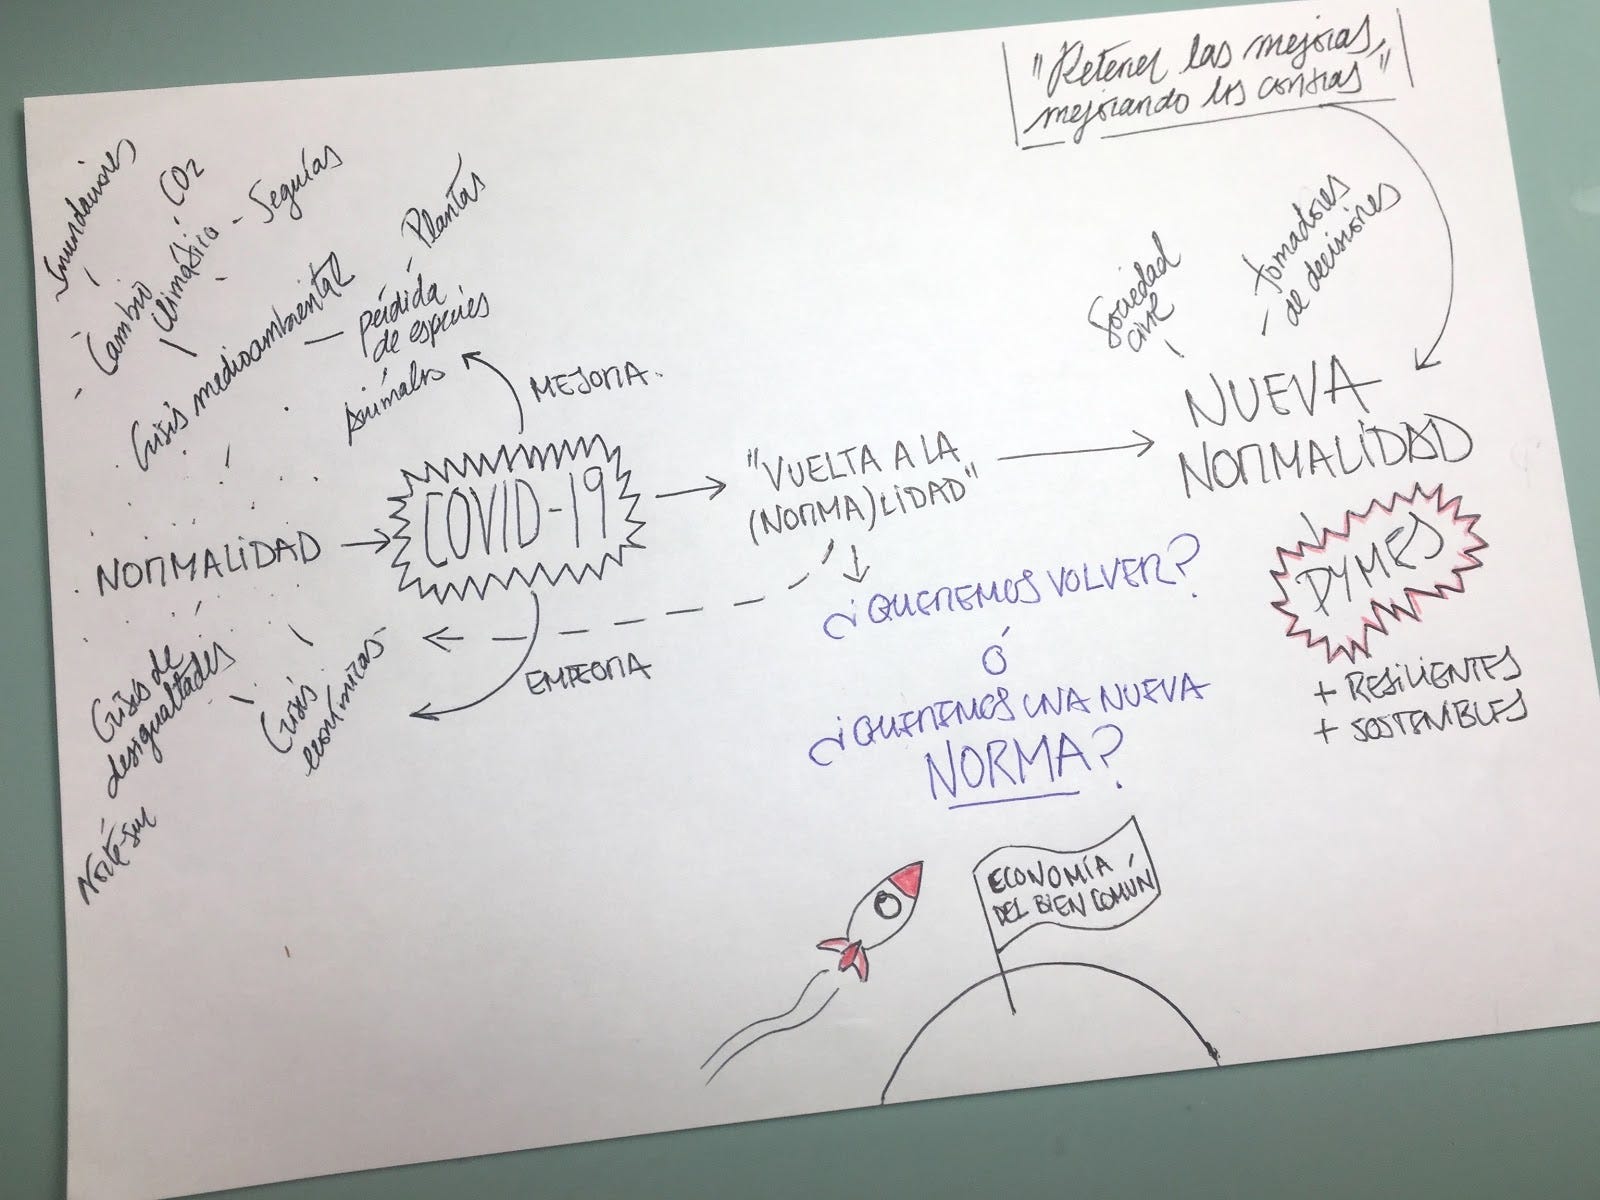 "Retener las mejoras,
mejorando los contras"
Inundaciones
CO2
Cambio
climático - Sequías
Crisis medioambiental
- Plantas
- pérdida
de especies
Animales
MEJORA.
Sociedad
civil
- tomadores
de decisiones
NUEVA
NORMALIDAD
NORMALIDAD
COVID-19
"VUELTA A LA
(NORMA)LIDAD"
EMPEORA
Crisis de
desigualdades
Norte-sur
Crisis
económicas
¿QUEREMOS VOLVER?
Ó
¿QUEREMOS UNA NUEVA
NORMA?
PYMES
+ RESILIENTES
+ SOSTENIBLES
ECONOMÍA
DEL BIEN COMÚN